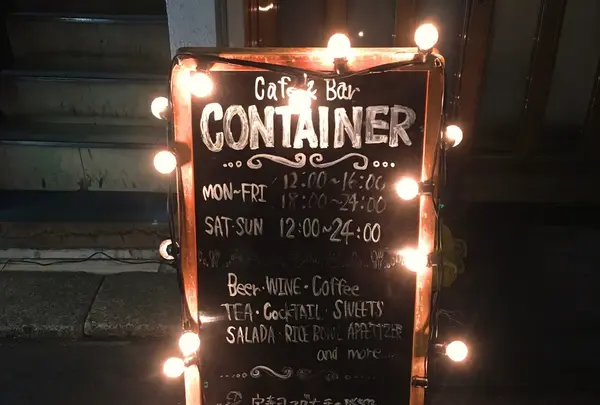 Cafe & Bar
CONTAINER
MON~FRI 12:00~16:00
18:00~24:00
SAT·SUN 12:00~24:00
Beer·WINE·Coffee
TEA·CockTAIL·SWEETS
SALADA·RICE BOWL APPETIZER
and more...